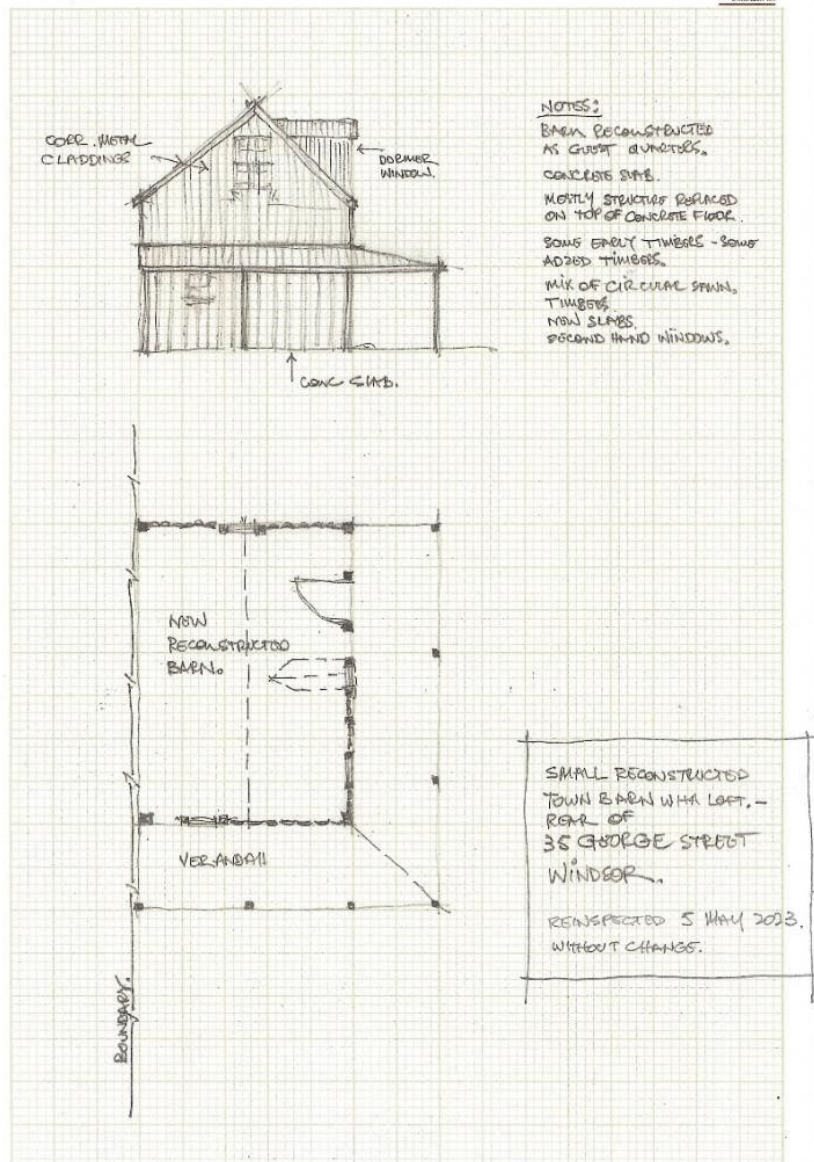 CORR. METAL
CLADDINGS
DORMER
WINDOW.
CONC SLAB.
NOTES:
BARN RECONSTRUCTED
AS GUEST QUARTERS.
CONCRETE SLAB.
MOSTLY STRUCTURE REPLACED
ON TOP OF CONCRETE FLOOR.
SOME EARLY TIMBERS - SOME
ADDED TIMBERS.
MIX OF CIRCULAR SAWN,
TIMBERS
NEW SLABS.
SECOND HAND WINDOWS.
NEW
RECONSTRUCTED
BARN.
VERANDAH
BOUNDARY.
SMALL RECONSTRUCTED
TOWN BARN WITH LOFT. -
REAR OF
35 GEORGE STREET
WINDSOR.
REINSPECTED 5 MAY 2023.
WITHOUT CHANGE.